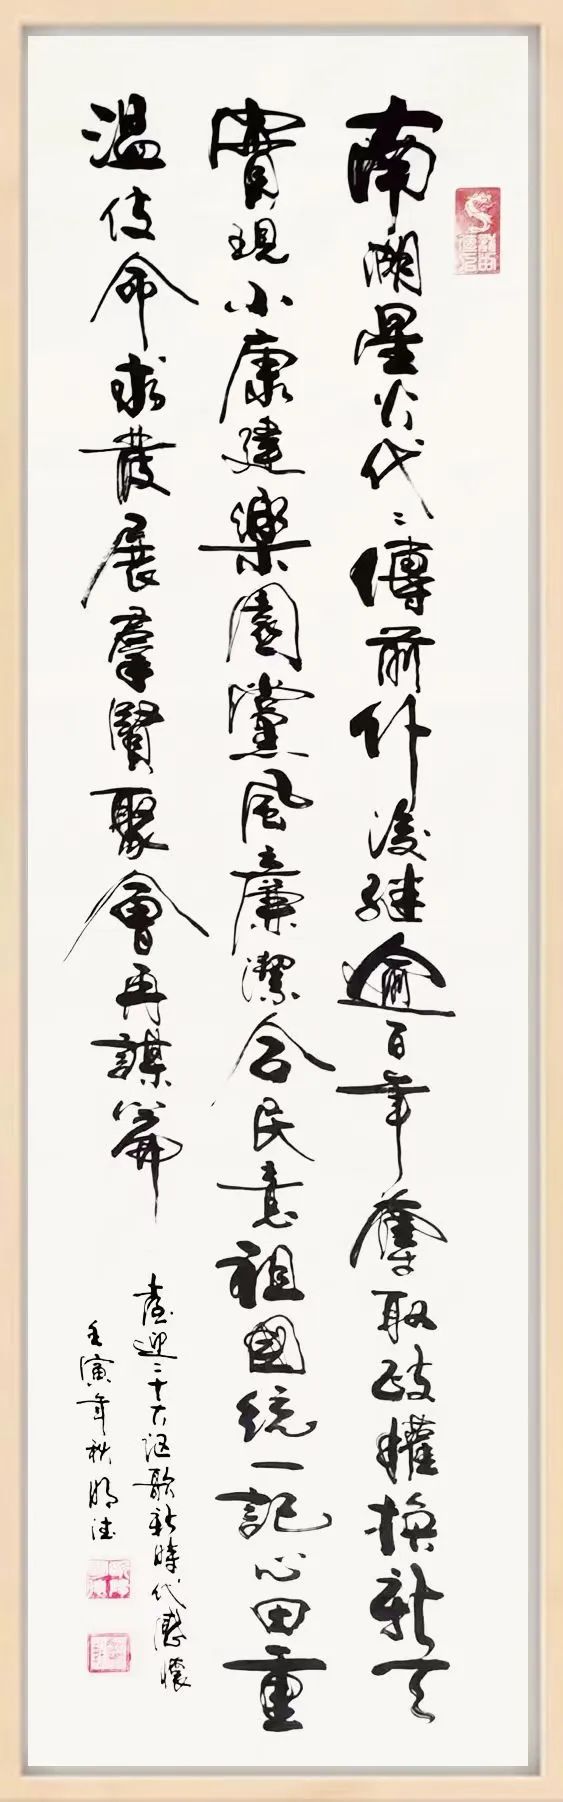 南湖星火代〻傳前仆後继逾百年奪取政權换新天
實現小康建樂園黨風廉潔合民意祖國統一記心田重
溫使命求發展羣賢聚會再謀篇
喜迎二十大讴歌新時代感懷
壬寅年秋